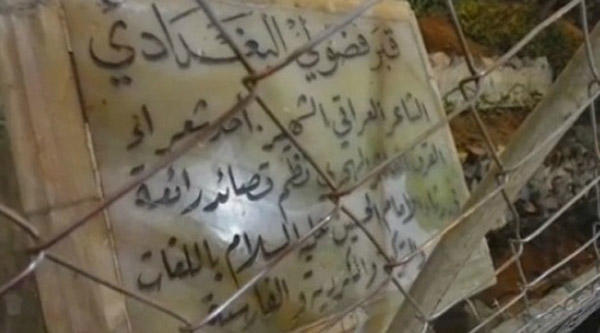 قبر فضولي البغدادي
الشاعر العراقي الشهير . احد شعراء
القرن نظم قصائد رائعة
الامام الحسين عليه السلام باللغات
والكردية والفارسية